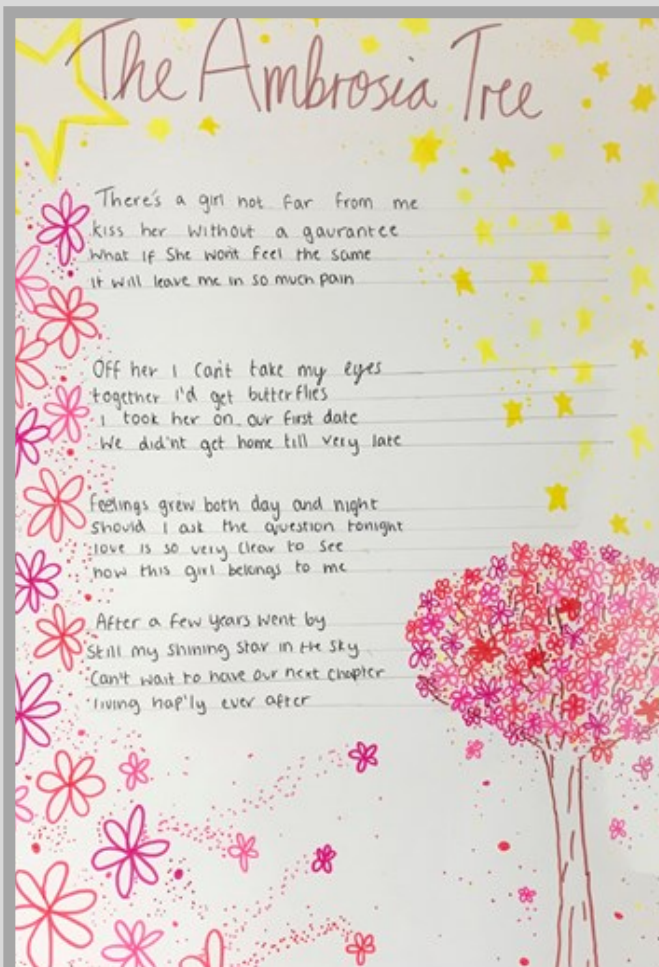 The Ambrosia Tree
There's a girl not far from me
kiss her without a gaurantee
What if She won't feel the same
It will leave me in so much pain
Off her I can't take my eyes
together I'd get butterflies
I took her on our first date
We did'nt get home till very late
feelings grew both day and night
Should I ask the question tonight
love is so very clear to see
now this girl belongs to me
After a few years went by
Still my shining star in the sky
Can't wait to have our next chapter
living hap'ly ever after